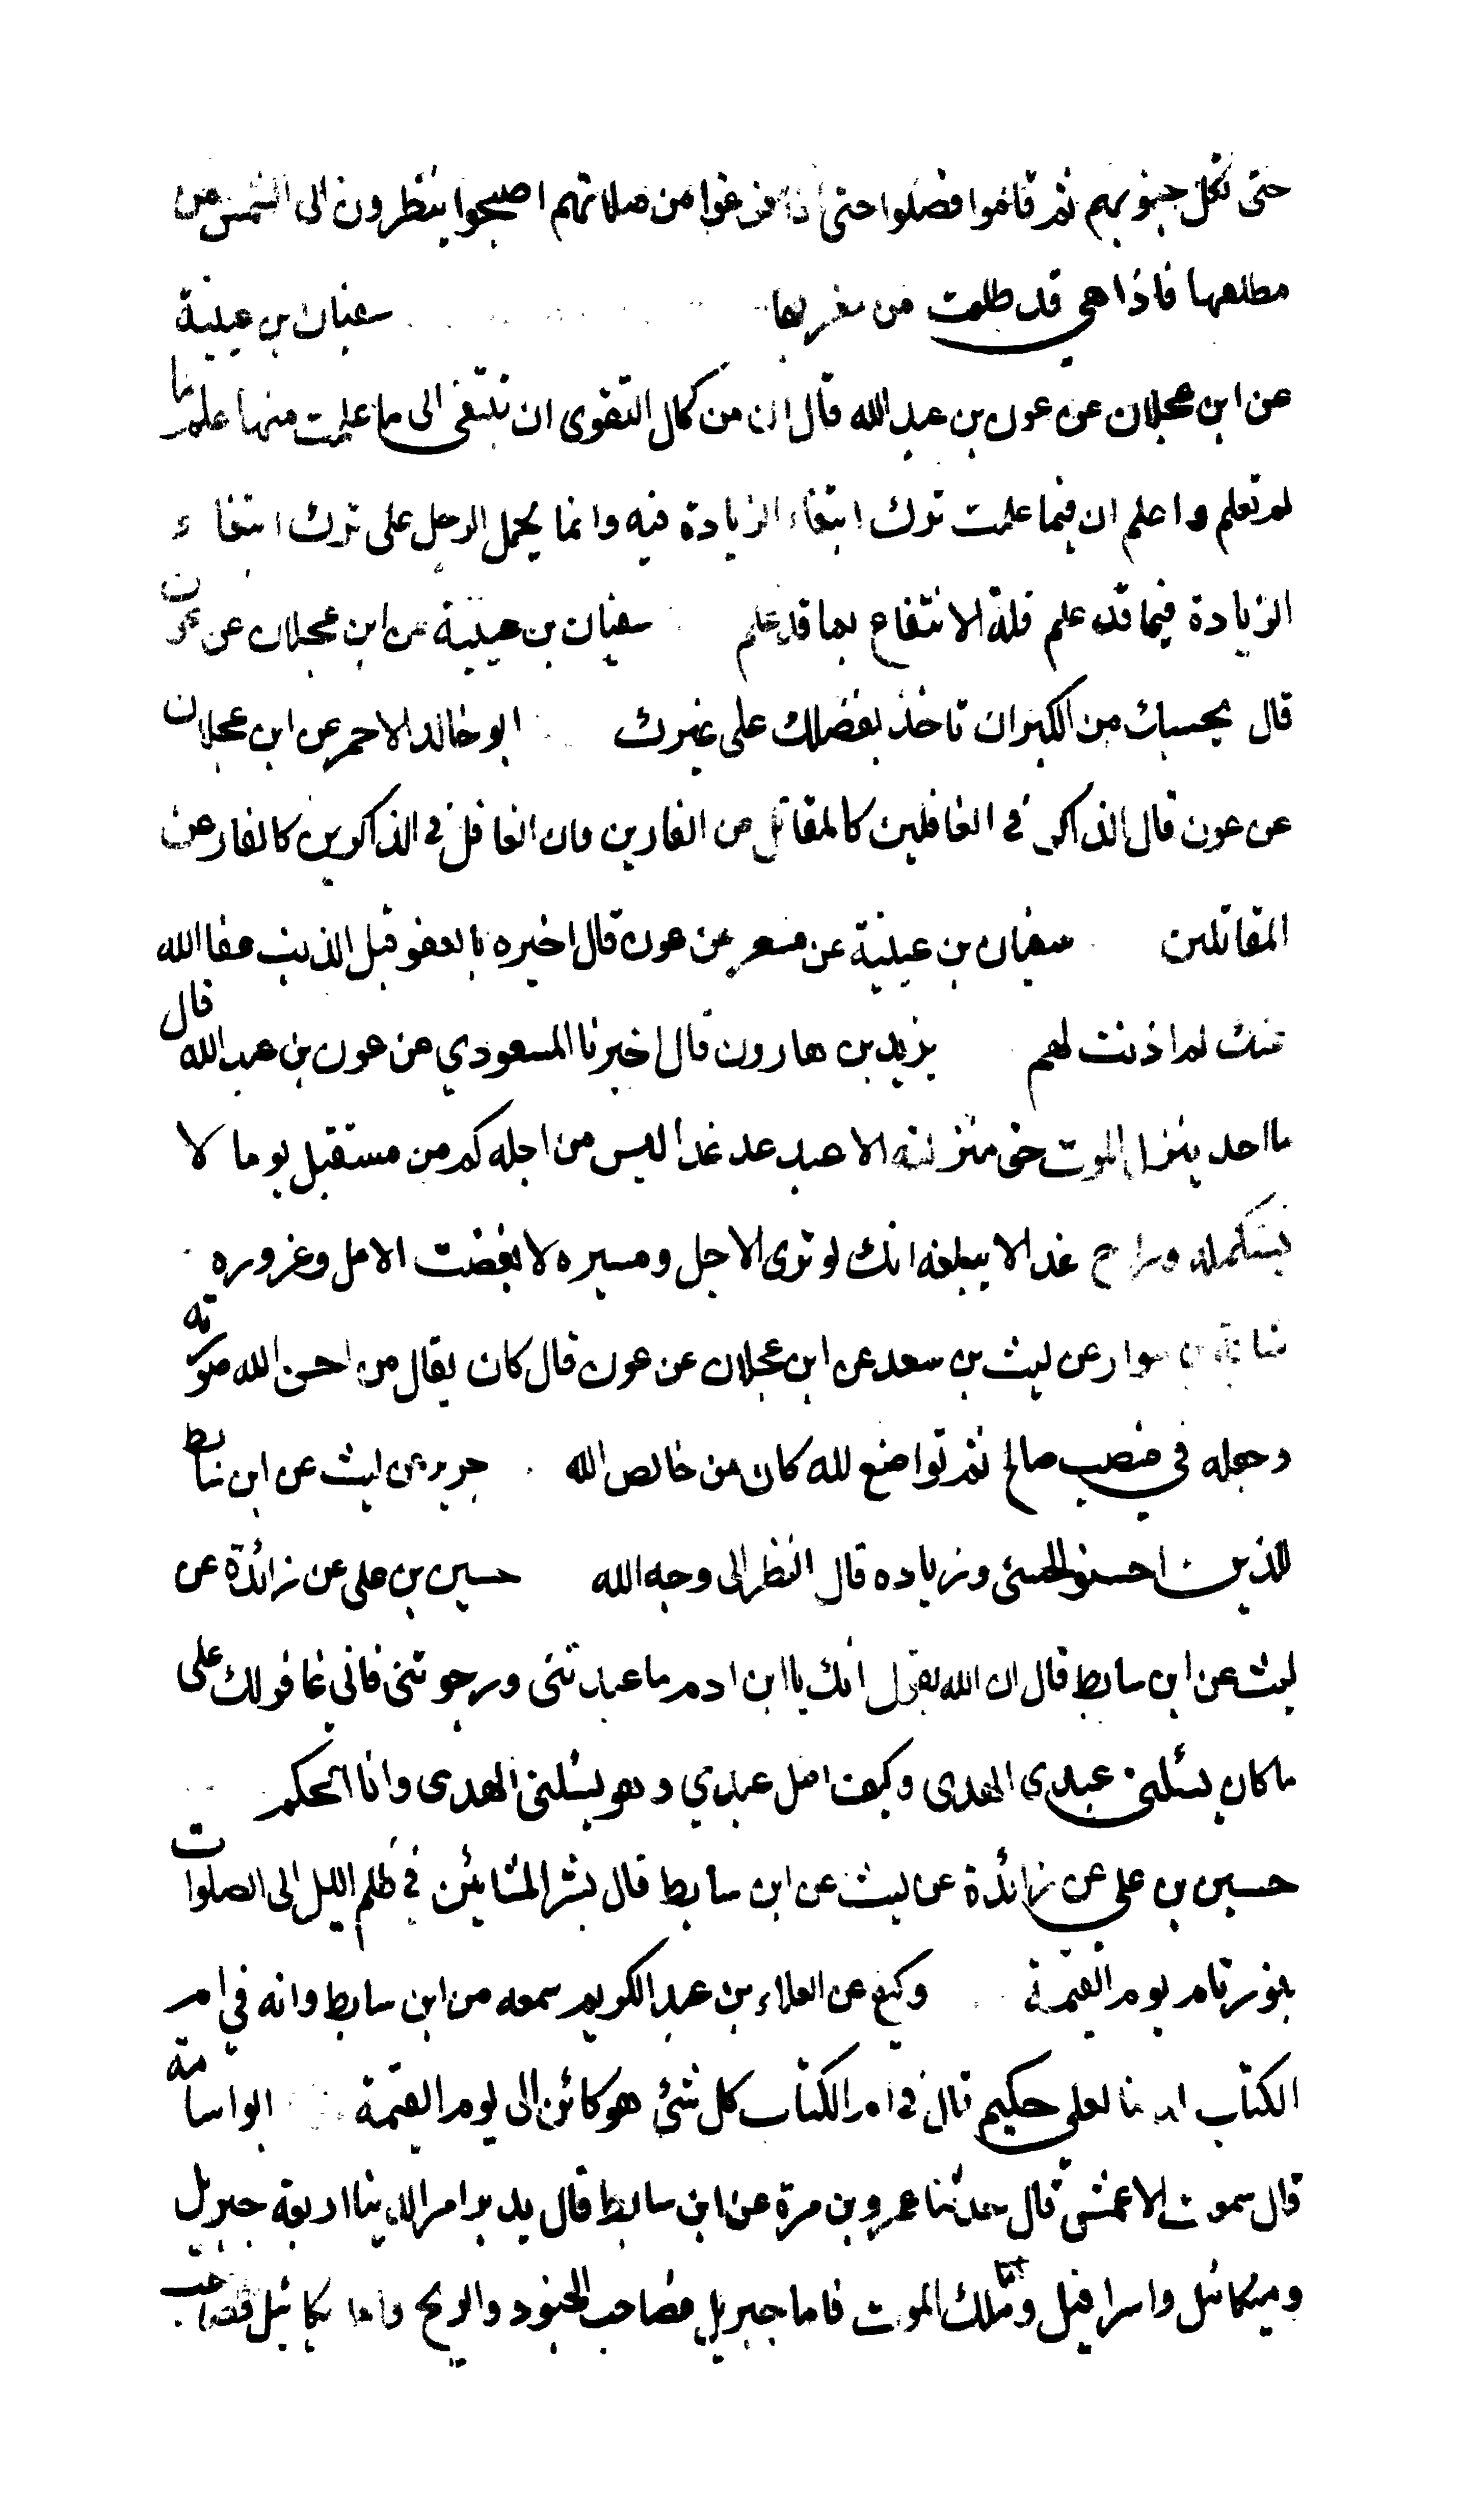 حتى تكل جنوبهم ثم قاموا فصلوا حتى اذا فرغوا من صلاتهم اصبحوا ينظرون الى الشمس من
مطلعها فاذا هي قد طلعت من مغربها سفيان بن عيينة
عن ابن عجلان عن عون بن عبد الله قال ان من كمال التقوى ان تبتغي الى ما علمت منها علم ما
لم تعلم واعلم ان فيما علمت ترك ابتغاء الزيادة فيه وانما يحمل الرجل على ترك ابتغاء
الزيادة فيما قد علم قلة الانتفاع بما قد علم سفيان بن عيينة عن ابن عجلان عن عون
قال بحسبك من الكبر ان تاخذ بفضلك على غيرك ابو خالد الاحمر عن ابن عجلان
عن عون قال الذاكر في الغافلين كالمقاتل من الفارين وان الغافل في الذاكرين كالفار عن
المقاتلين سفيان بن عيينة عن مسعر عن عون قال اخبره بالعفو قبل الذنب عفا الله
عنك لم اذنت لهم يزيد بن هارون قال اخبرنا المسعودي عن عون بن عبد الله قال
ما احد ينزل الموت حق منزلته الا عبد عد غدا ليس من اجله كم من مستقبل يوما لا
يستكمله وراج غدا لا يبلغه انك لو ترى الاجل ومسيره لابغضت الامل وغروره
سوار عن ليث بن سعد عن ابن عجلان عن عون قال كان يقال من احسن الله صورته
وجعله في منصب صالح ثم تواضع لله كان من خالص الله جرير عن ليث عن ابن سابط
للذين احسنوا الحسنى وزيادة قال النظر الى وجه الله حسين بن على عن زائدة عن
ليث عن ابن سابط قال ان الله يقول انك يا ابن ادم ما عبدتنى ورجوتنى فانى غافر لك على
ما كان يسئلنى عبدى الهدى وكيف اضل عبدي وهو يسئلنى الهدى وانا الحكم
حسين بن على عن زائدة عن ليث عن ابن سابط قال بشر المشائين في ظلم الليل الى الصلوات
بنور تام يوم القيمة وكيع عن العلاء بن عبد الكريم سمعه من ابن سابط وانه في ام
الكتاب لدينا لعلي حكيم قال في ام الكتاب كل شئ هو كائن الى يوم القيمة ابو اسامة
قال سمعت الاعمش قال حدثنا عمرو بن مرة عن ابن سابط قال يدبر امر الدينا اربعة جبريل
وميكائل واسرافيل وملك الموت فاما جبريل فصاحب الجنود والريح واما ميكائيل فصاحب